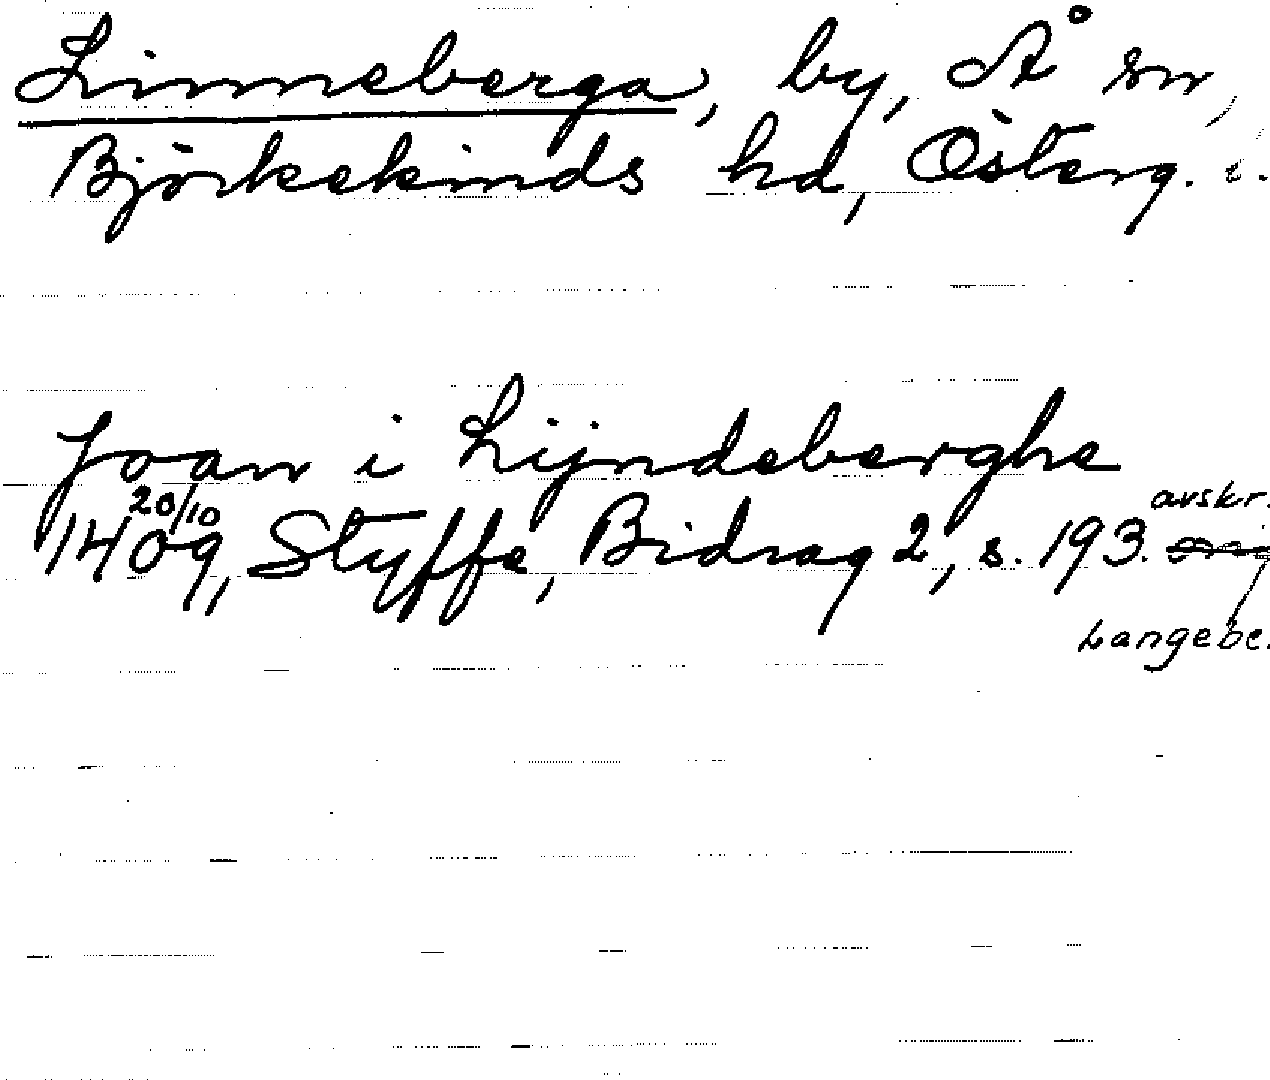 Linneberga, by, Å sn,
Björkekinds hd, Österg. l.
Joan i Lijndeberghe
20/10 avskr.
1409, Styffe, Bidrag 2, s. 193. orig
Langebe.